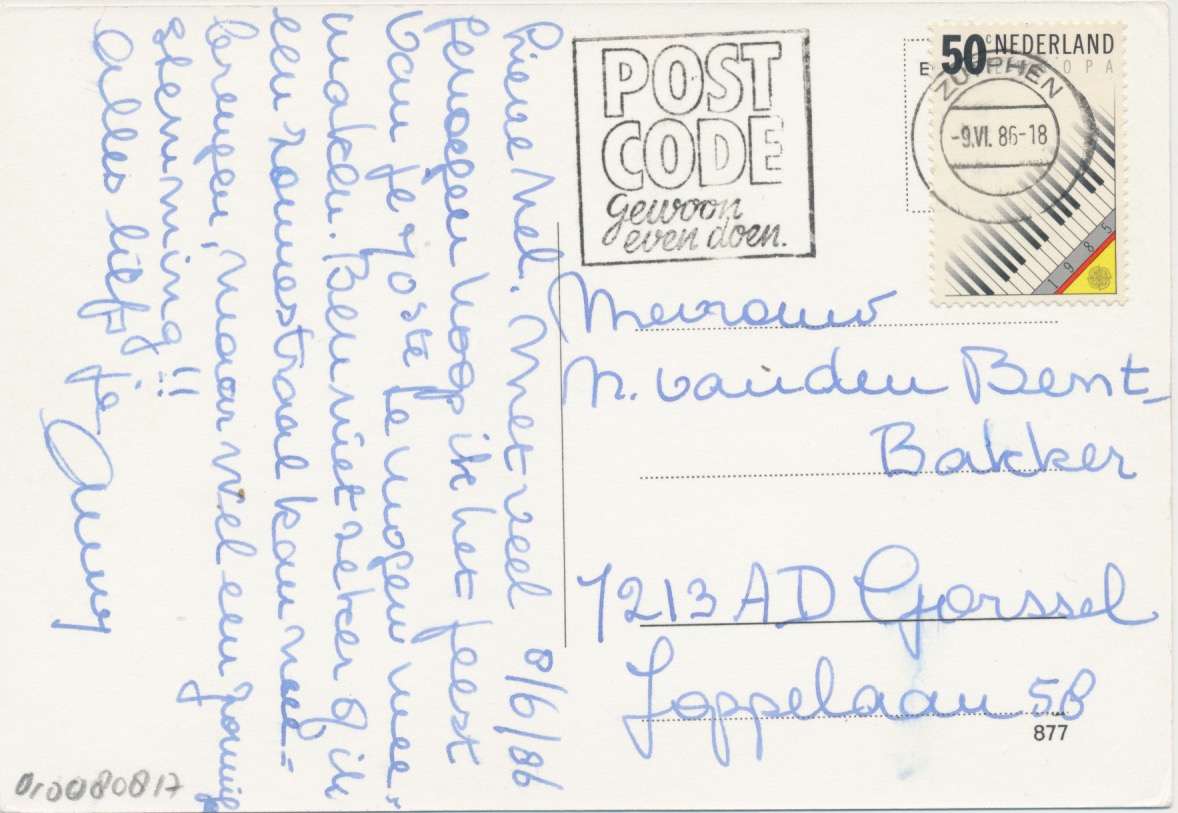 Lieve Mel. Met veel 8/6/86
genoegen hoop ik het feest
van je 70ste te mogen mee-
maken. Ben niet zeker of ik
een zonnestraal kan mee=
brengen, maar wel een zonnige
stemming!!
Alles liefs je
Anny
POST
CODE
gewoon
even doen.
50 c NEDERLAND
EUROPA
ZUTPHEN
-9.VI. 86-18
1985
Mevrouw
M. van den Bent-
Bakker
7213 AD Gorssel
Joppelaan 58
877
0100080817